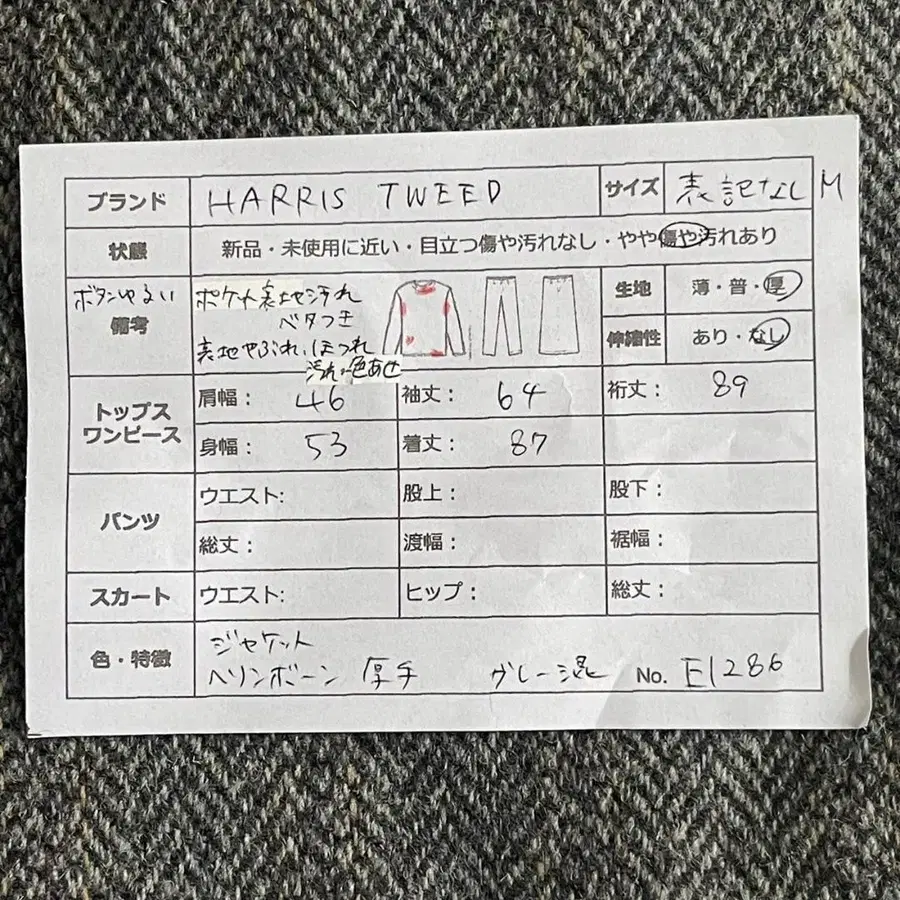 ブランド HARRIS TWEED サイズ 表記なし M
状態 新品・未使用に近い・目立つ傷や汚れなし・やや傷や汚れあり
ボタンゆるい
備考
ポケット裏地汚れ
ベタつき
裏地やぶれ、ほつれ
汚れ、色あせ
生地 薄・普・厚
伸縮性 あり・なし
トップス
ワンピース
肩幅： 46 袖丈： 64 裄丈： 89
身幅： 53 着丈： 87
パンツ
ウエスト: 股上： 股下：
総丈： 渡幅： 裾幅：
スカート ウエスト: ヒップ： 総丈：
色・特徴
ジャケット
ヘリンボーン 厚手 グレー混 No. E1286